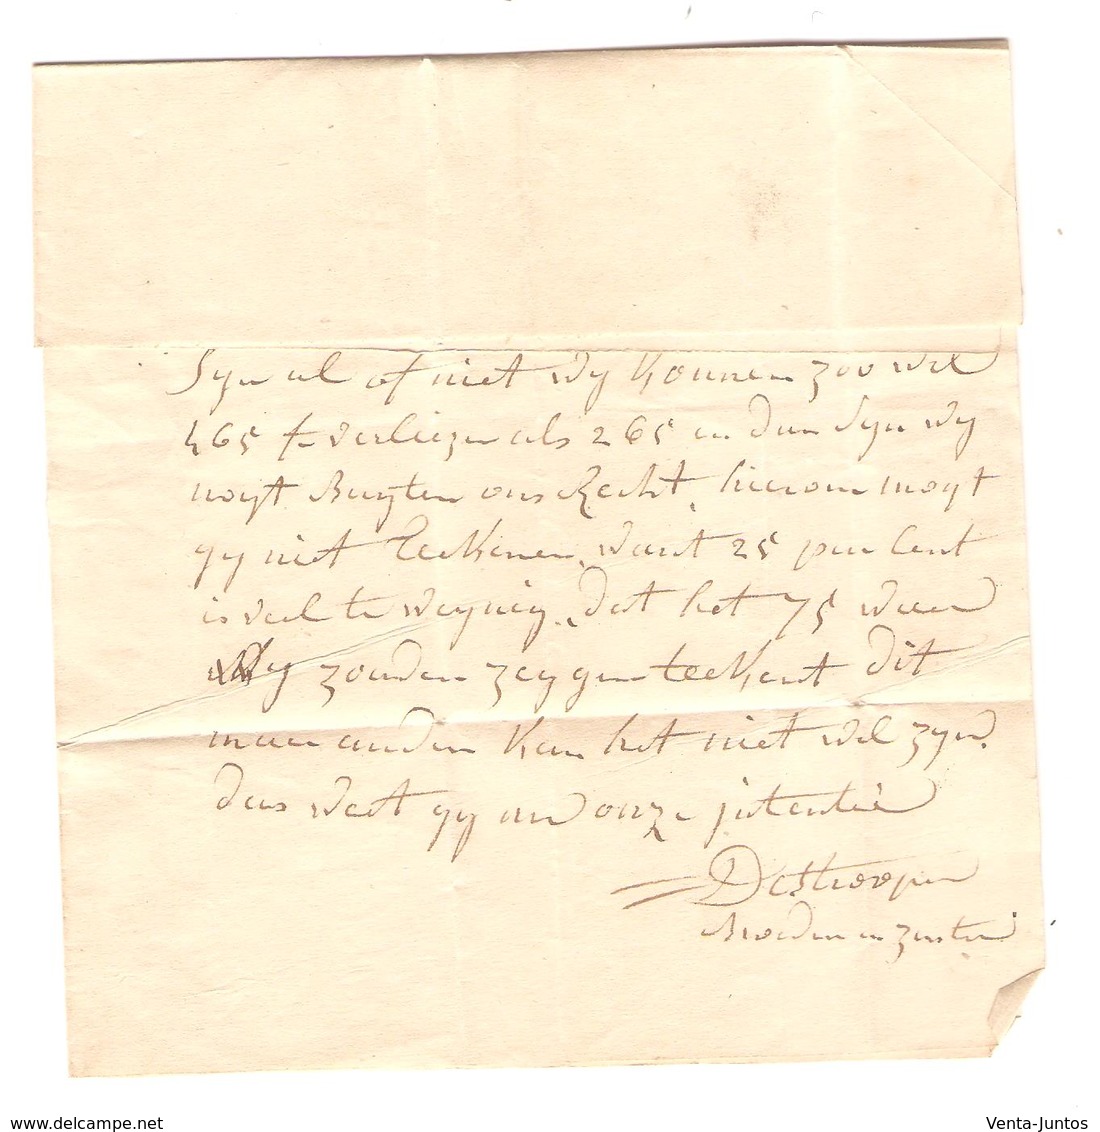 Syn al of niet wy konnen zoo wel
465 fr verliezen als 265 en dan Syn wy
noyt Buyten ons Recht, hierom moyt
gy niet Teekenen, want 25 per Cent
is veel te weynig, dat het 75 waer
wy zouden zeggen teekent dit
maer anders kan het niet wel zyn.
dus weet gy onze jntentie
Destrooper
Broeder en zuster
www.delcampe.net
Venta-Juntos